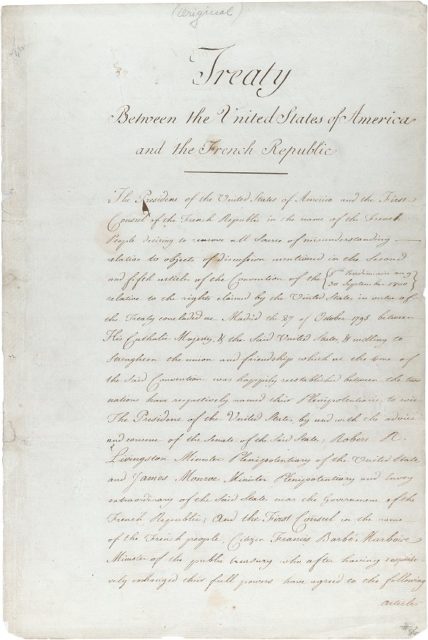 (original)
Treaty
Between the United States of America
and the French Republic
The President of the United States of America and the First
Consul of the French Republic in the name of the French
People desiring to remove all Source of misunderstanding
relative to objects of discussion mentioned in the Second
and fifth articles of the Convention of the 8th Vendémiaire an 9
30 September 1800
relative to the rights claimed by the United States in virtue of
the Treaty concluded at Madrid the 27 of October 1795 between
His Catholic Majesty, & the Said United States, & willing to
Strengthen the union and friendship which at the time of
the Said Convention was happily reestablished between the two
nations have respectively named their Plenipotentiaries to wit
The President of the United States, by and with the advice
and consent of the Senate of the Said States, Robert R.
Livingston Minister Plenipotentiary of the United States
and James Monroe Minister Plenipotentiary and Envoy
extraordinary of the Said States near the Government of the
French Republic; And the First Consul in the name
of the French people, Citizen Francis Barbé Marbois
Minister of the public treasury who after having respecti-
vely exchanged their full powers have agreed to the following
articles